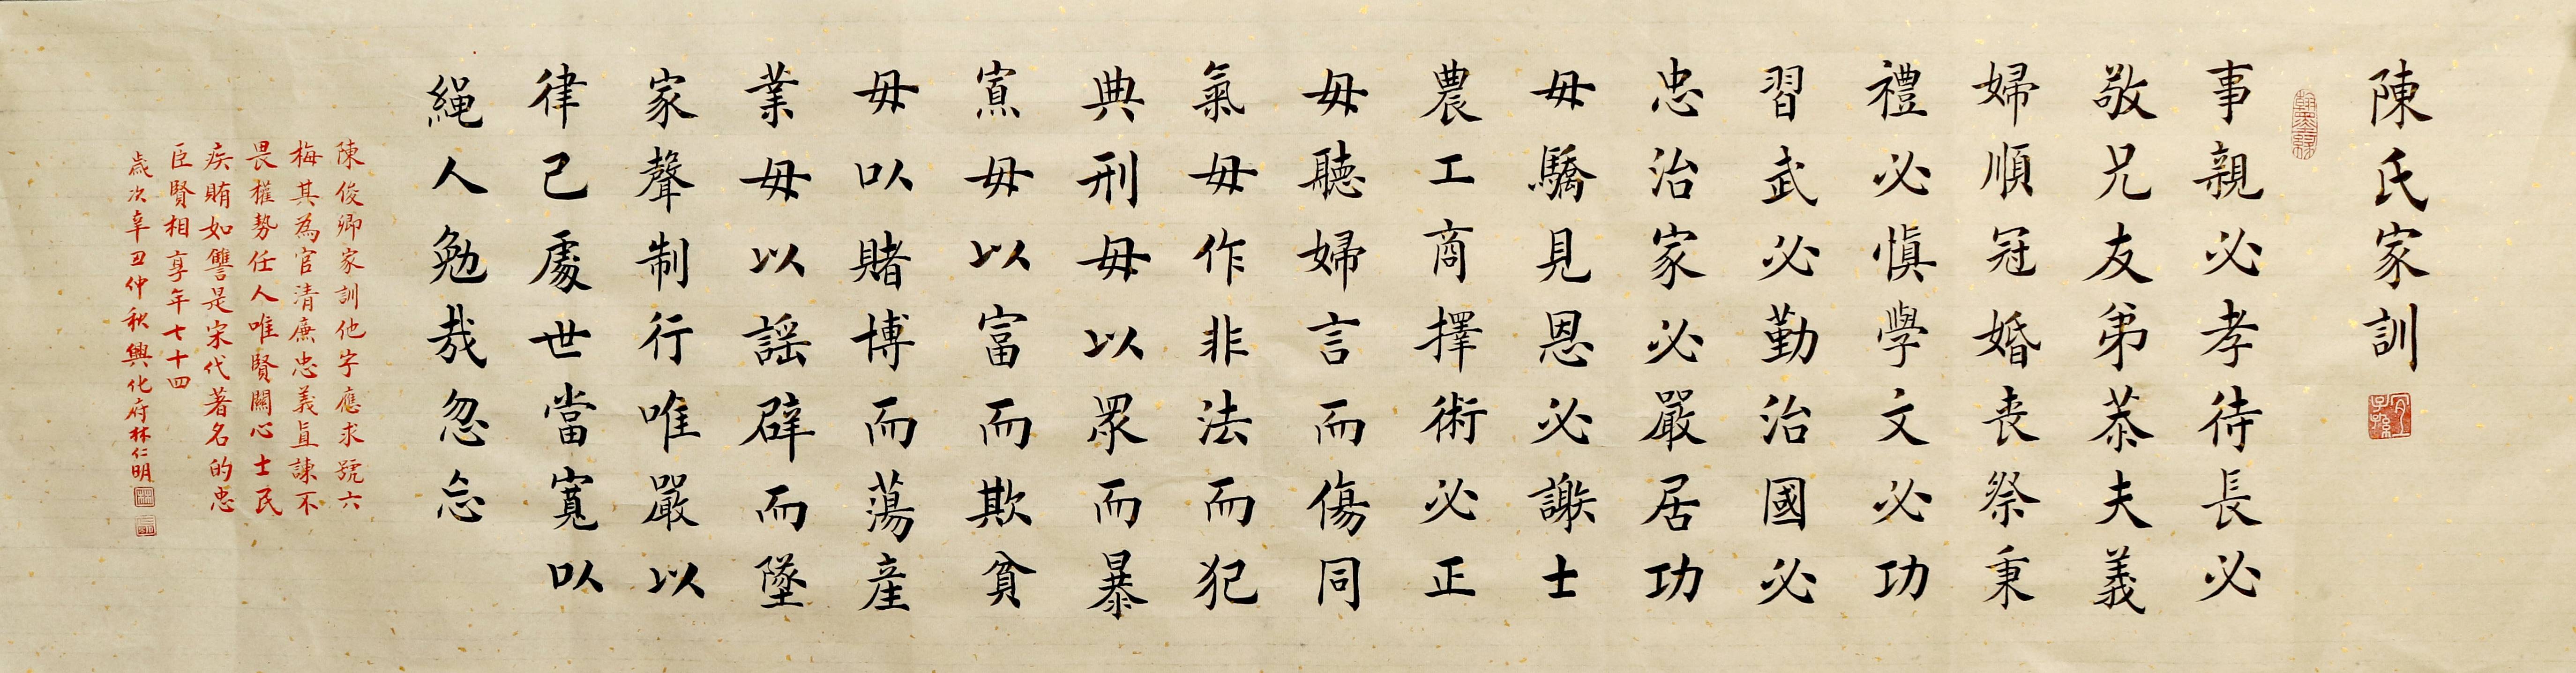 陳氏家訓
事親必孝待長必
敬兄友弟恭夫義
婦順冠婚喪祭秉
禮必慎學文必功
習武必勤治國必
忠治家必嚴居功
毋驕見恩必謝士
農工商擇術必正
毋聽婦言而傷同
氣毋作非法而犯
典刑毋以眾而暴
寡毋以富而欺貧
毋以賭博而蕩產
業毋以謠辟而墜
家聲制行唯嚴以
律己處世當寬以
繩人勉哉忽忘
陳俊卿家訓他字應求號六
梅其為官清廉忠義直諫不
畏權勢任人唯賢關心士民
疾賄如讐是宋代著名的忠
臣賢相享年七十四
歲次辛丑仲秋興化府林仁明